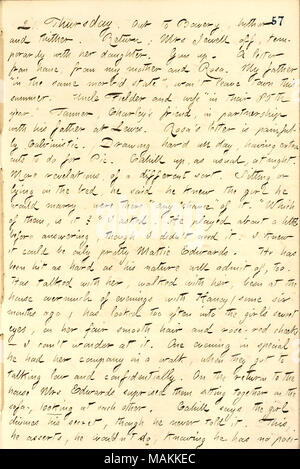 57
2. Thursday. Out to Bowery, hither
and thither. Return; Mrs Jewell off, tem-
porarily with her daughter. Give up. A letter
from home, from my mother and Rosa. My father
"in the same morbid state" won't leave town this
summer. Uncle Fielder and wife "in their 85th
year." Tanner, Charley's friend, in partnership
with his father at Lewes. Rosa's letter is painful-
ly Calvinistic. Drawing hard all day, having extra
cuts to do for Pic. Cahill up, as usual, at night.
More revelations, of a different sort. Sitting or
lying on the bed he said he knew the girl he
would marry, were there any chance of it. "Which
of them, is it?" I asked. He played about a little
before answering, though I didn't need it. I knew
it could be only pretty Mattie Edwards. He has
been hit as hard as his nature will admit of, too.
Has talked with her, walked with her, been at the
house overmuch of evenings with Haney, some six
months ago, has looked too often into the girl's sweet
eyes, on her fair smooth hair and rose-red cheeks
I can't wonder at it. One evening in special
he had her company in a walk, when they got to
talking low and confidentially. On the return to the
house Mrs Edwards surprised them sitting together on the
sofa, looking at each other. Cahill says the girl
divines his secret, though he never told it. This,
he asserts, he wouldn't do, knowing he has no posi-
alamy
Image ID: MAKKEC
www.alamy.com